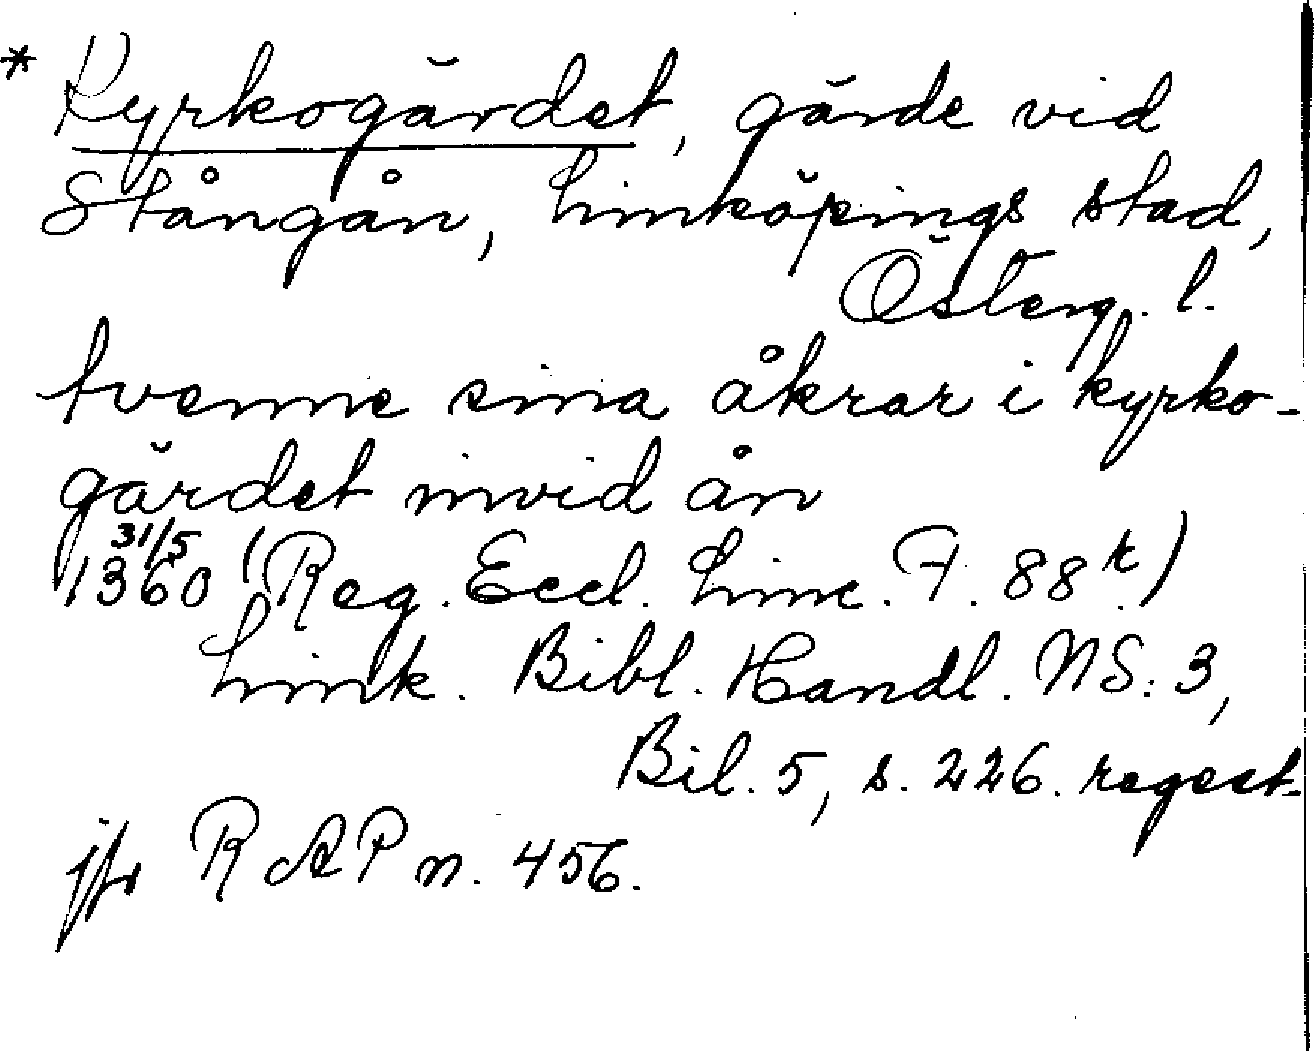 * Kyrkogärdet, gärde vid
Stångån, Linköpings stad,
Österg. l.
tvenne sina åkrar i kyrko-
gärdet invid ån
1360 31/5 (Reg. Eccl. Linc. F. 88 r.)
Link. Bibl. Handl. NS: 3,
Bil. 5, s. 226. regest.
jfr RAP n. 456.